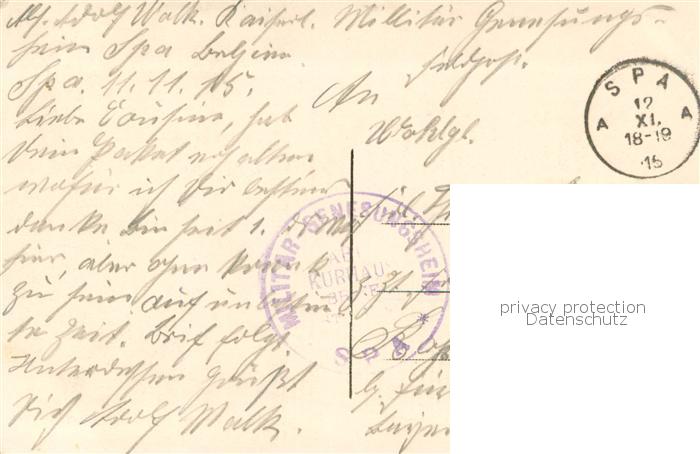 Abs. Adolf Walk. Kaiserl. Millitär Genesungs-
heim Spa Belgien.
Feldpost.
Spa. 11.11.15.
An
Liebe Cousine, hab
Wohlgb.
Dein Paket erhalten
wofür ich Dir bestens
danke bin seit 1. d. Mts
hier, aber ohne krank
zu sein auf unbestim
te Zeit. Brif folgt
Unterdessen grüßt
Dich Adolf Walk.
Bayer
SPA
12
XI.
18-19
15
A A
MILITÄR GENESUNGSHEIM
KURHAUS
SPA
privacy protection
Datenschutz